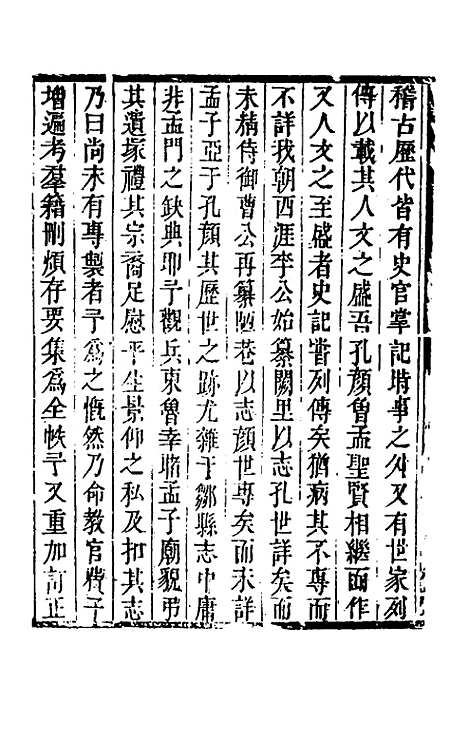 稽古歷代皆有史官掌記時事之外又有世家列
傳以載其人文之盛吾孔顏曾孟聖賢相繼而作
又人文之至盛者史記嘗列傳矣猶病其不專而
不詳我朝西涯李公始纂闕里以志孔世詳矣而
未精侍御曹公再纂陋巷以志顏世專矣而未詳
孟子亞于孔顏其歷世之跡尤雜于鄒縣志中庸
非孟門之缺典耶予觀兵東魯幸瞻孟子廟貌弔
其遺塚禮其宗裔足慰平生景仰之私及扣其志
乃曰尚未有專製者予為之慨然乃命教官費子
增遍考羣籍刪煩存要集為全帙予又重加訂正